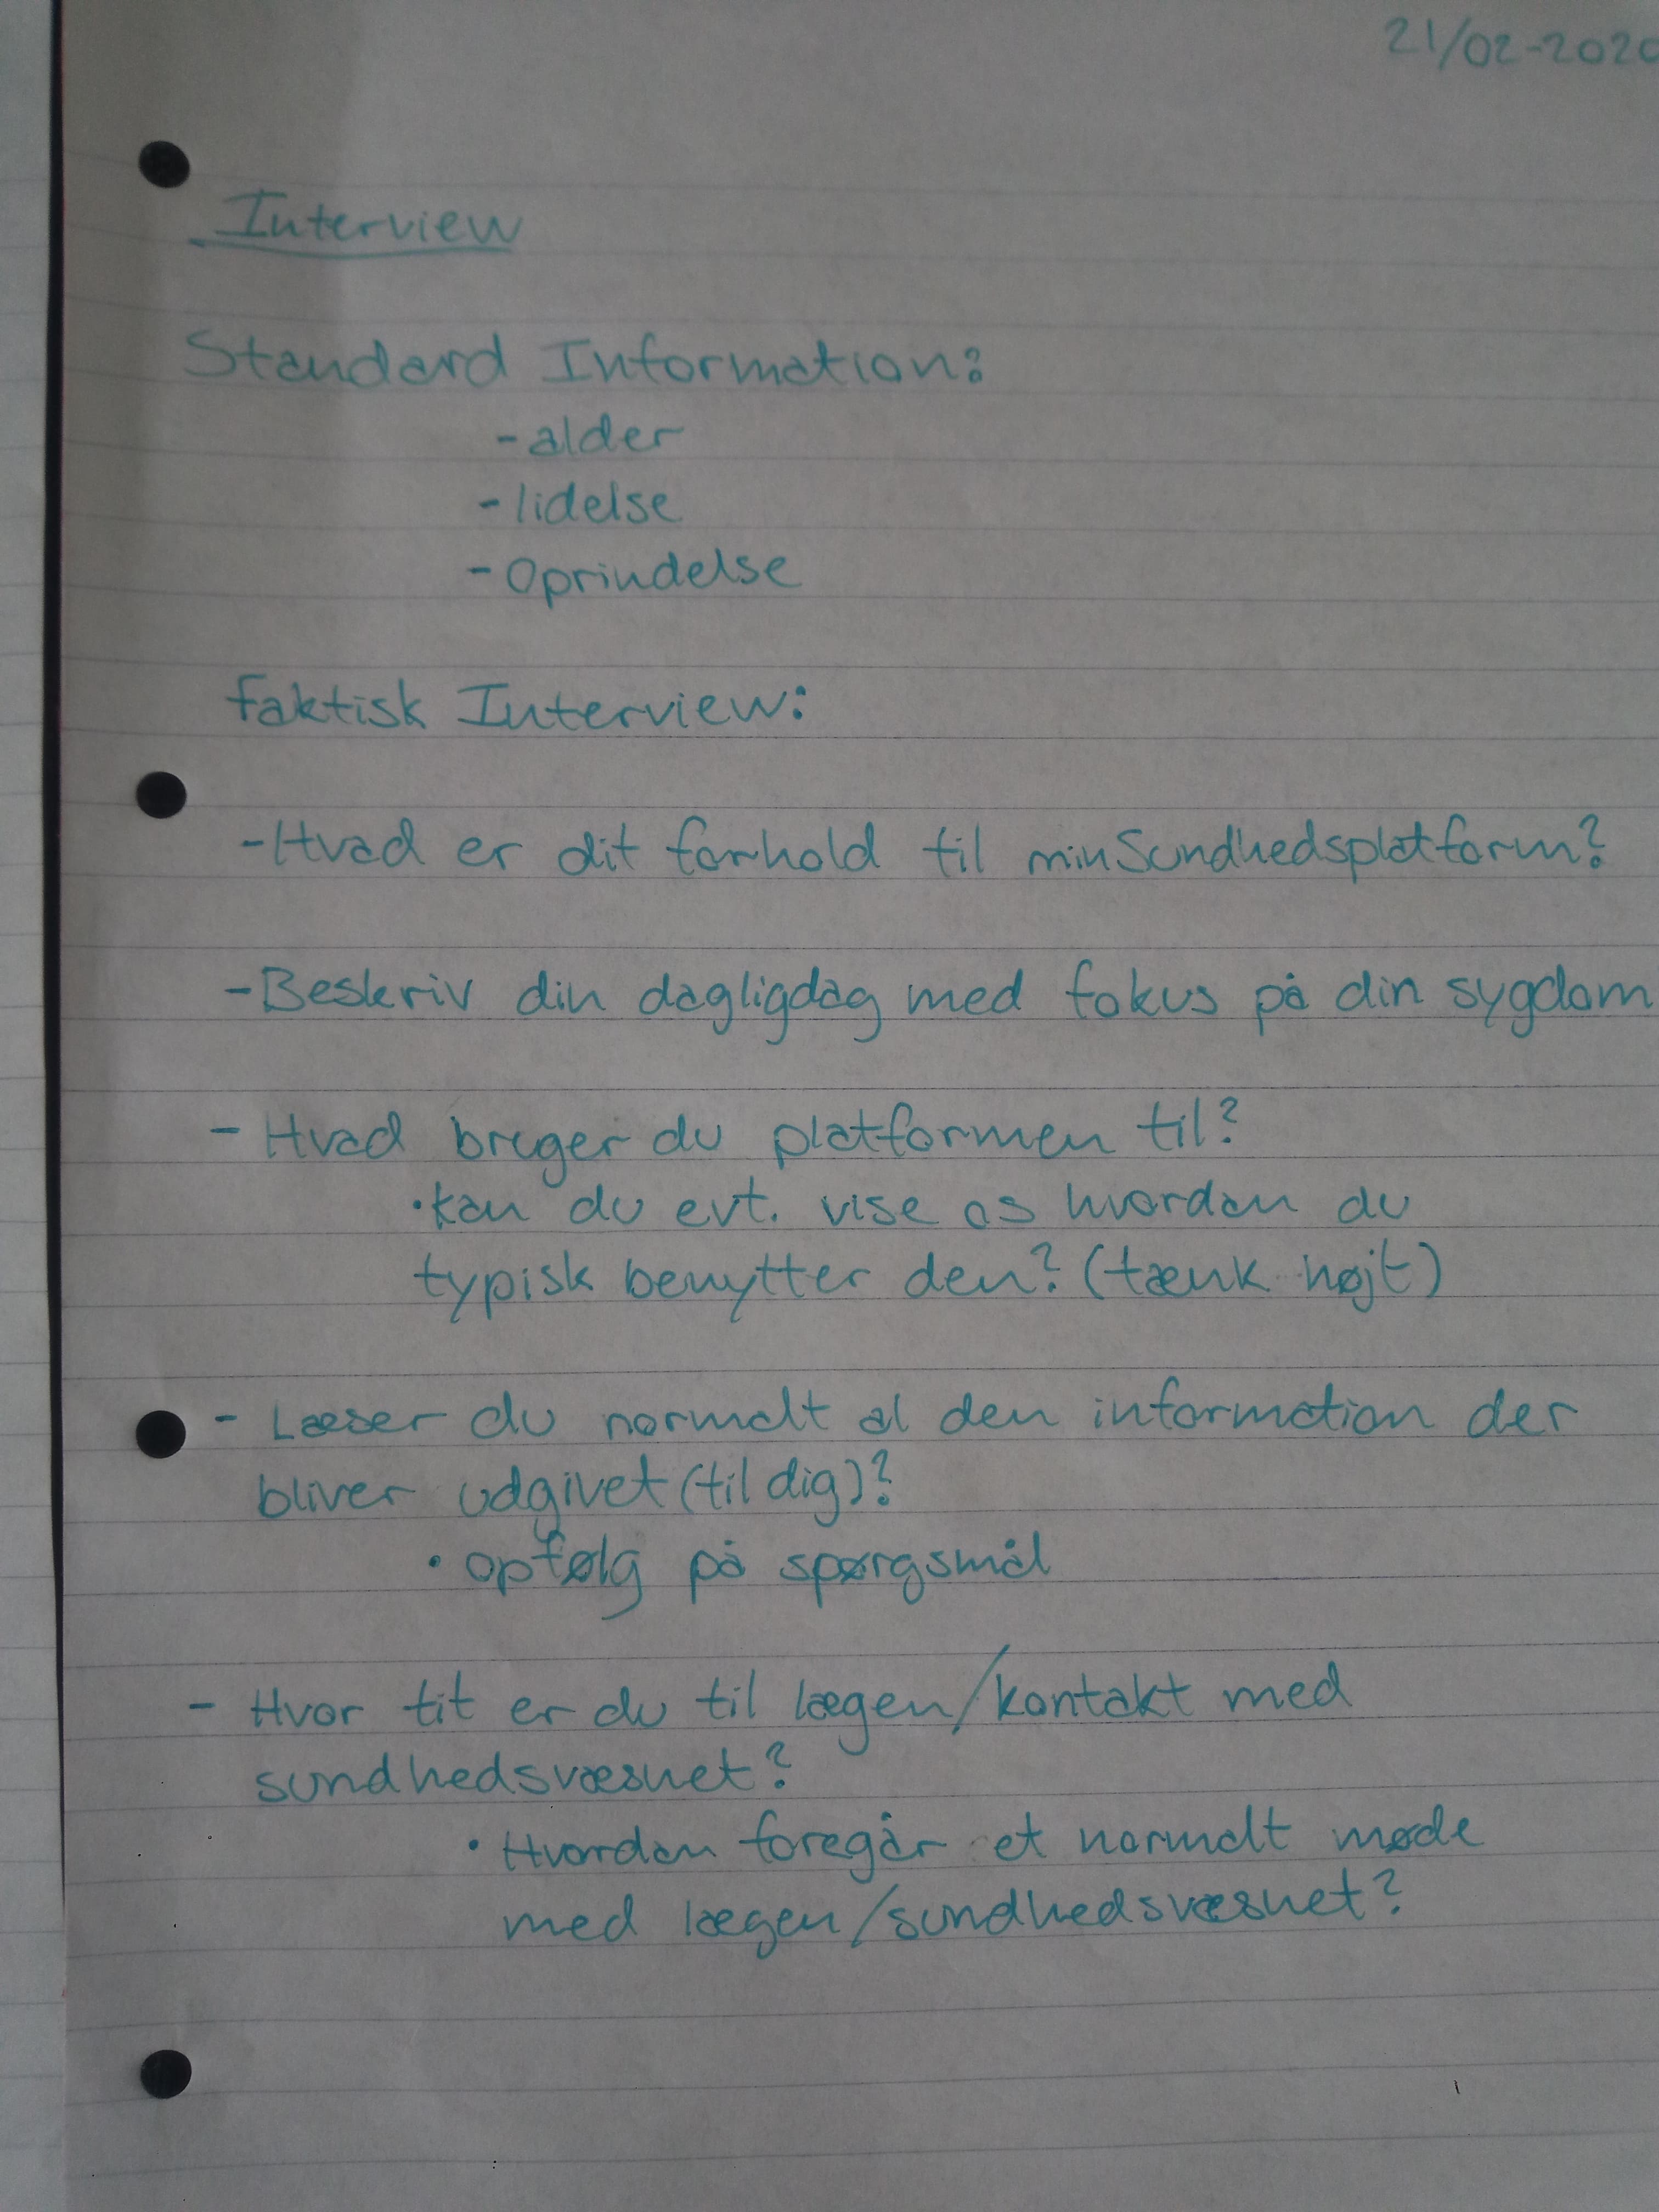 21/02-2020
Interview
Standard Information:
- alder
- lidelse
- Oprindelse
faktisk Interview:
- Hvad er dit forhold til minSundhedsplatform?
- Beskriv din dagligdag med fokus på din sygdom
- Hvad bruger du platformen til?
• kan du evt. vise os hvordan du
typisk benytter den? (tænk højt)
- Læser du normalt al den information der
bliver udgivet (til dig)?
• opfølg på spørgsmål
- Hvor tit er du til lægen/kontakt med
sundhedsvæsnet?
• Hvordan foregår et normalt møde
med lægen/sundhedsvæsnet?